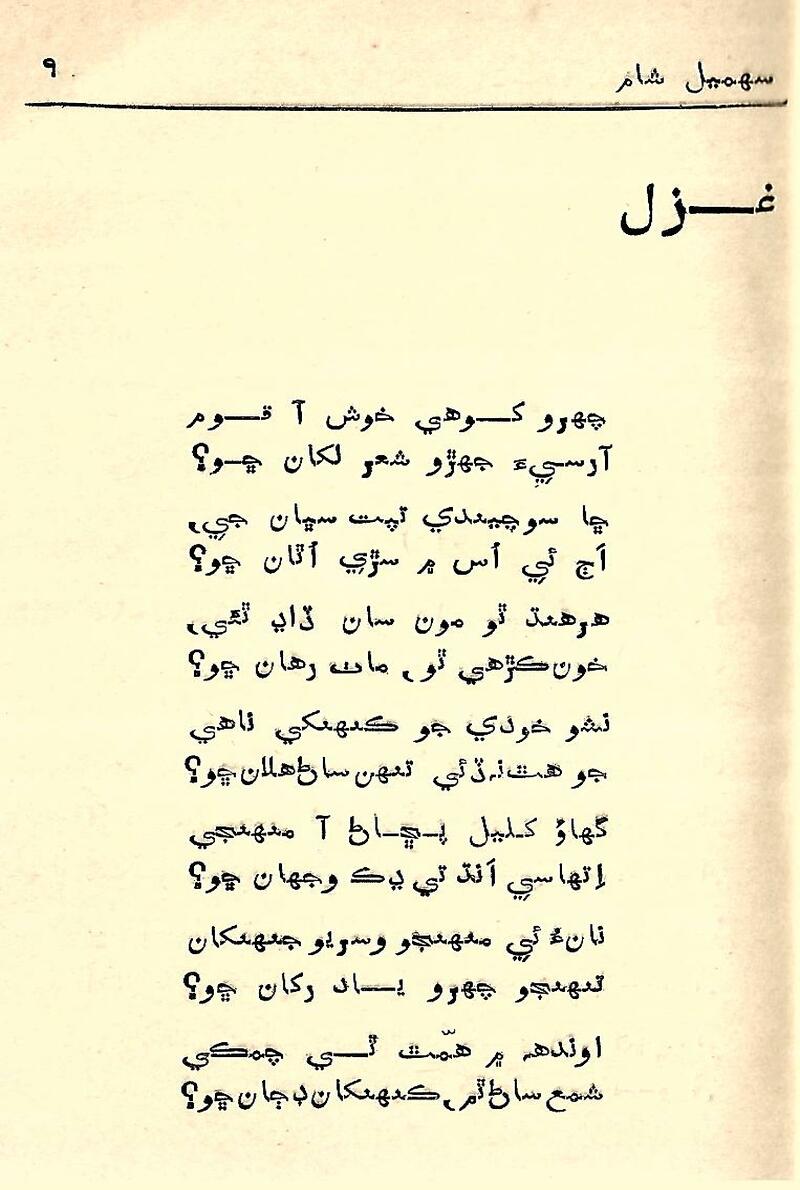 سهمیل شام ۹
غزل
چهرو کوهي خوش آ قوم
آرسيءَ جهڙو شعر لکان ڇو؟
ڇا سوچيندي تپت سڀان جي،
اَڄ ئي اُس ۾ سڙي اُٿان ڇو؟
هرهنڌ ٿو مون سان ڏاڍ ٿئي،
خون ڪڙهي ٿو، مات رهان ڇو؟
نشو خودي جو ڪنهنکي ناهي
جو هٿ نہ ڏئي تنهن ساڻ هلان ڇو؟
گهاوُ کليل پڇاڻ آ منهنجي
اِتهاسي اَنڌ تي ڍڪ وجهان ڇو؟
نانءُ ئي منهنجو وسريو جنهنکان
تنهنجو چهرو ياد رکان ڇو؟
اونده ۾ همّٿ ٿي چمڪي
شمع ساڻ ٿم، ڪنهنکان ڊڄان ڇو؟